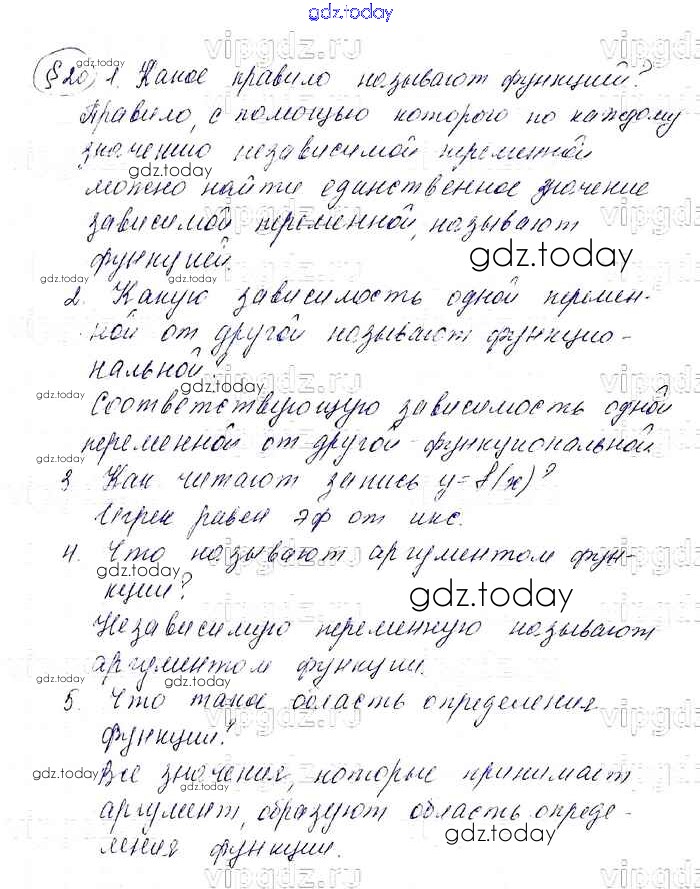 gdz.today
§20, 1. Какое правило называют функцией?
Правило, с помощью которого по каждому
значению независимой переменной
можно найти единственное значение
зависимой переменной, называют
функцией.
2. Какую зависимость одной перемен-
ной от другой называют функцио-
нальной?
Соответствующую зависимость одной
переменной от другой - функциональной.
3 Как читают запись y=f(x)?
Игрек равен эф от икс.
4. Что называют аргументом фун-
кции?
Независимую переменную называют
аргументом функции.
5. Что такое область определения
функции?
Все значения, которые принимает
аргумент, образуют область опреде-
ления функции.